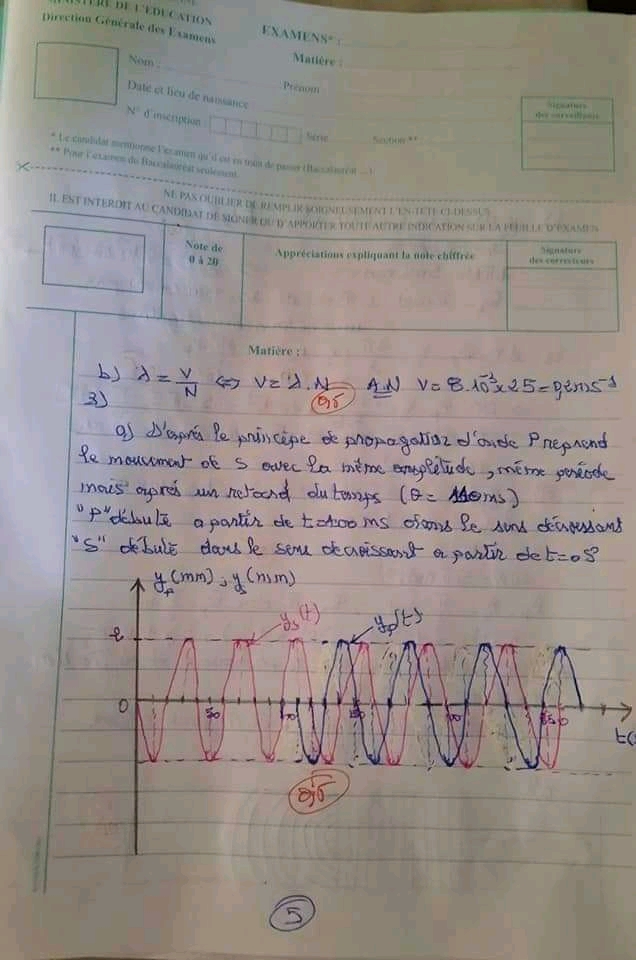 MINISTÈRE DE L'EDUCATION
Direction Générale des Examens
EXAMENS* :
Matière :
Nom :
Prénom :
Date et lieu de naissance
N° d'inscription
Série
Section **
Signature
des surveillants
* Le candidat mentionne l'examen qu'il est en train de passer (Baccalauréat ...)
** Pour l'examen du Baccalauréat seulement.
NE PAS OUBLIER DE REMPLIR SOIGNEUSEMENT L'EN-TÊTE CI-DESSUS
IL EST INTERDIT AU CANDIDAT DE SIGNER OU D'APPORTER TOUTE AUTRE INDICATION SUR LA FEUILLE D'EXAMEN
Note de
0 à 20
Appréciations expliquant la note chiffrée
Signature
des correcteurs
Matière :
b) λ = V/N ⇔ V = λ.N A.N V = 8.10⁻³ x 25 = 0,2 ms⁻¹
0,5
3)
a) D'après le principe de propagation d'onde P reprend
le mouvement de S avec la même amplitude, même période
mais après un retard du temps (θ = ms)
"P" débute a partir de t= ms dans le sens décroissant
"S" débute dans le sens decroissant a partir de t=0 S
y (mm) ; y (mm)
ys(t)
yp(t)
0
50
t(
0,5
5